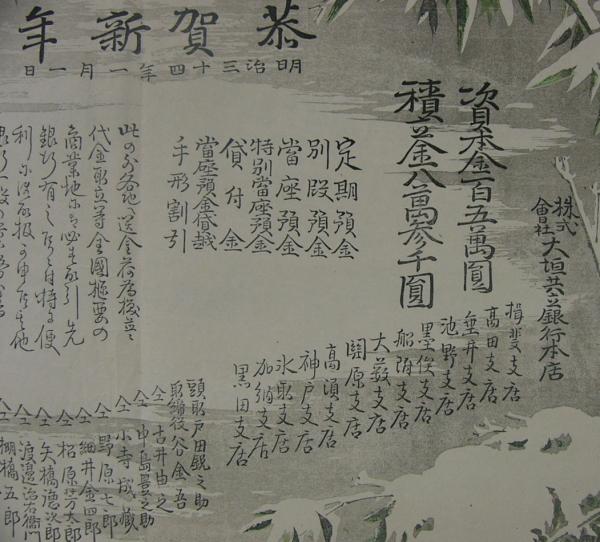 恭賀新年
明治三十四年一月一日
株式會社大垣共立銀行本店
資本金百五萬圓
積立金八萬參千圓
揖斐支店
高田支店
垂井支店
池野支店
墨俣支店
船附支店
大薮支店
関原支店
高須支店
神戸支店
氷取支店
加納支店
黒田支店
定期預金
別段預金
當座預金
特別當座預金
貸付金
當座預金貸越
手形割引
此の外各地へ送金荷為換並ニ
代金取立等全國樞要の
商業地ニは必す取引先
銀行有之
頭取戸田鋭之助
取締役谷金吾
仝古井由之
仝中島曇之助
仝小寺成藏
仝野原七郎
仝細井金四郎
仝松原芳太郎
仝矢橋徳次郎
仝渡邊治右衛門
仝棚橋五郎